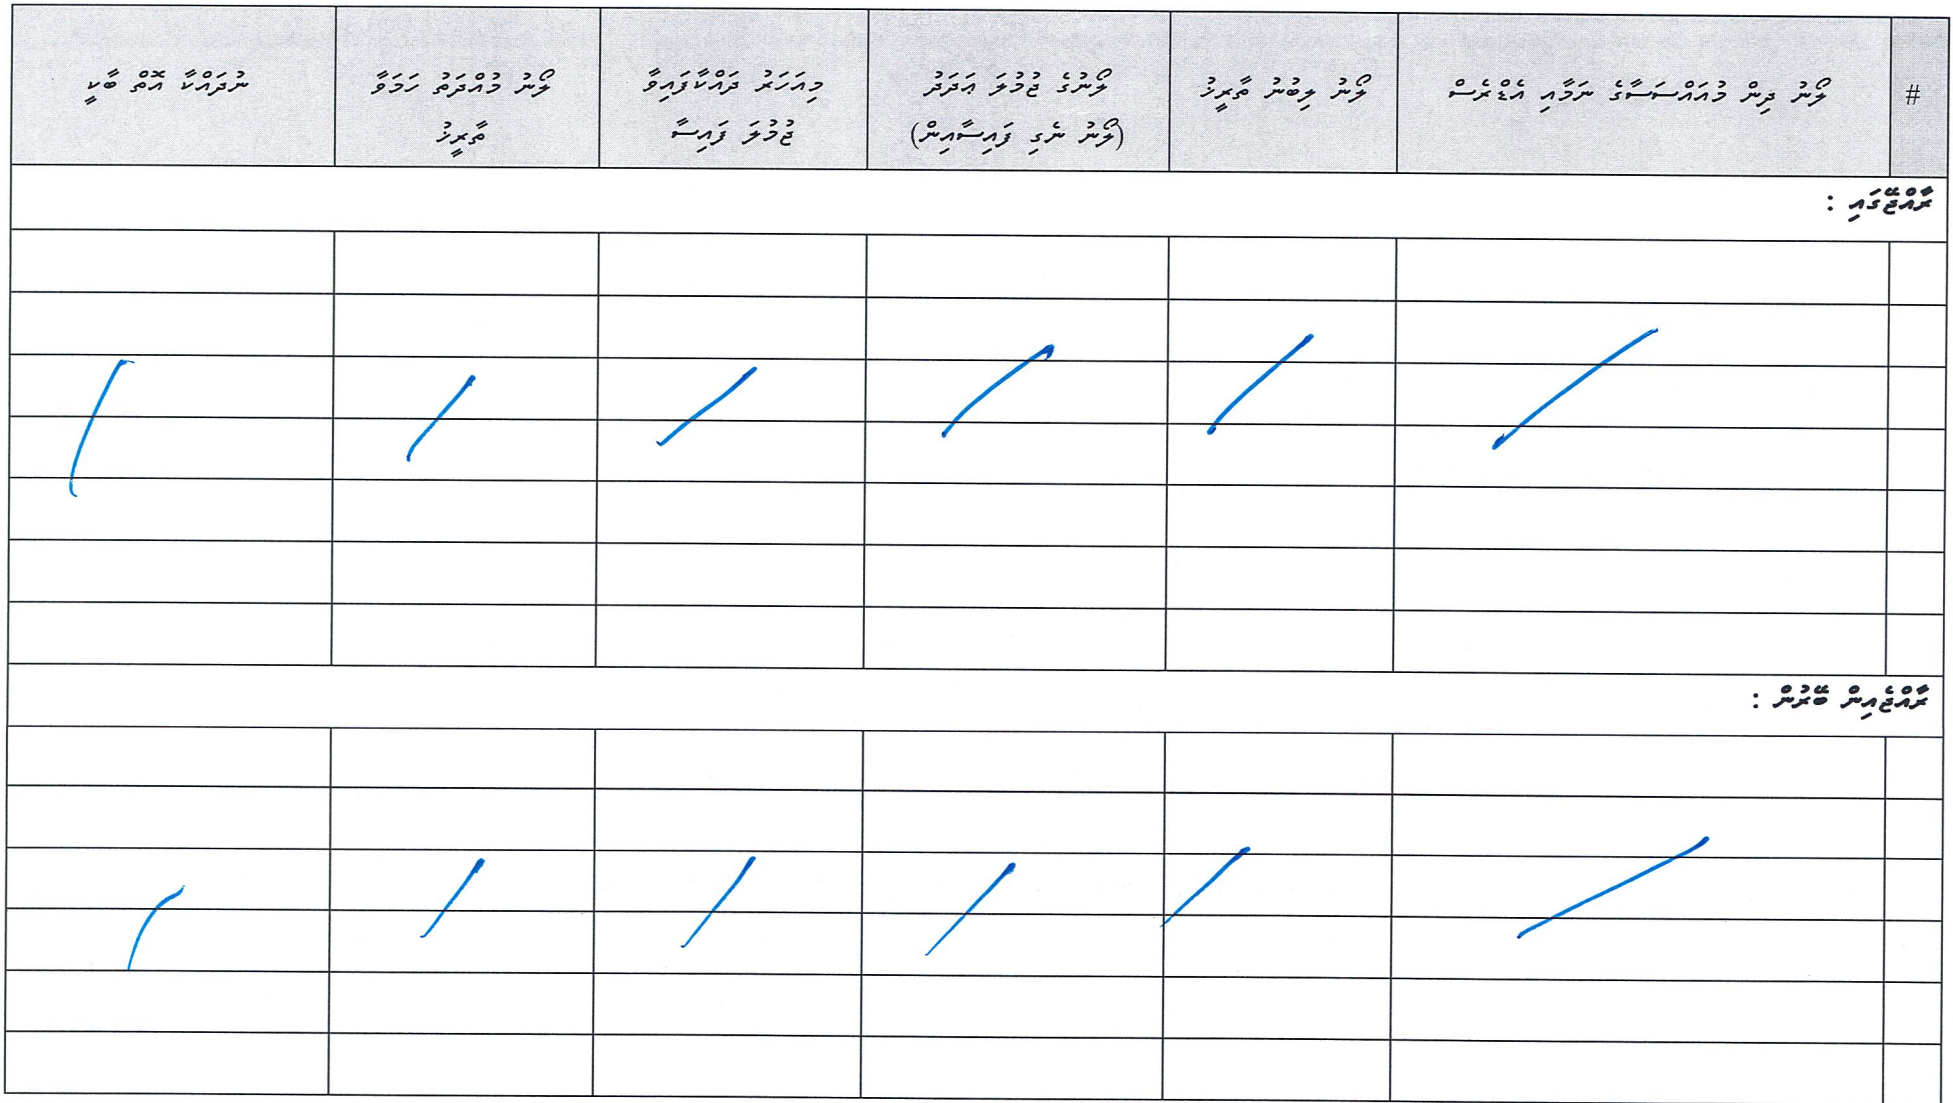 #
ލޯނު ދިން މުއައްސަސާގެ ނަމާއި އެޑްރެސް
ލޯނު ލިބުނު ތާރީޚު
ލޯނުގެ ޖުމުލަ ޢަދަދު
(ލޯނު ނެގި ފައިސާއިން)
މިއަހަރު ދައްކާފައިވާ
ޖުމުލަ ފައިސާ
ލޯނު މުއްދަތު ހަމަވާ
ތާރީޚު
ނުދައްކާ އޮތް ބާކީ
ރާއްޖޭގައި :
ރާއްޖެއިން ބޭރުން :